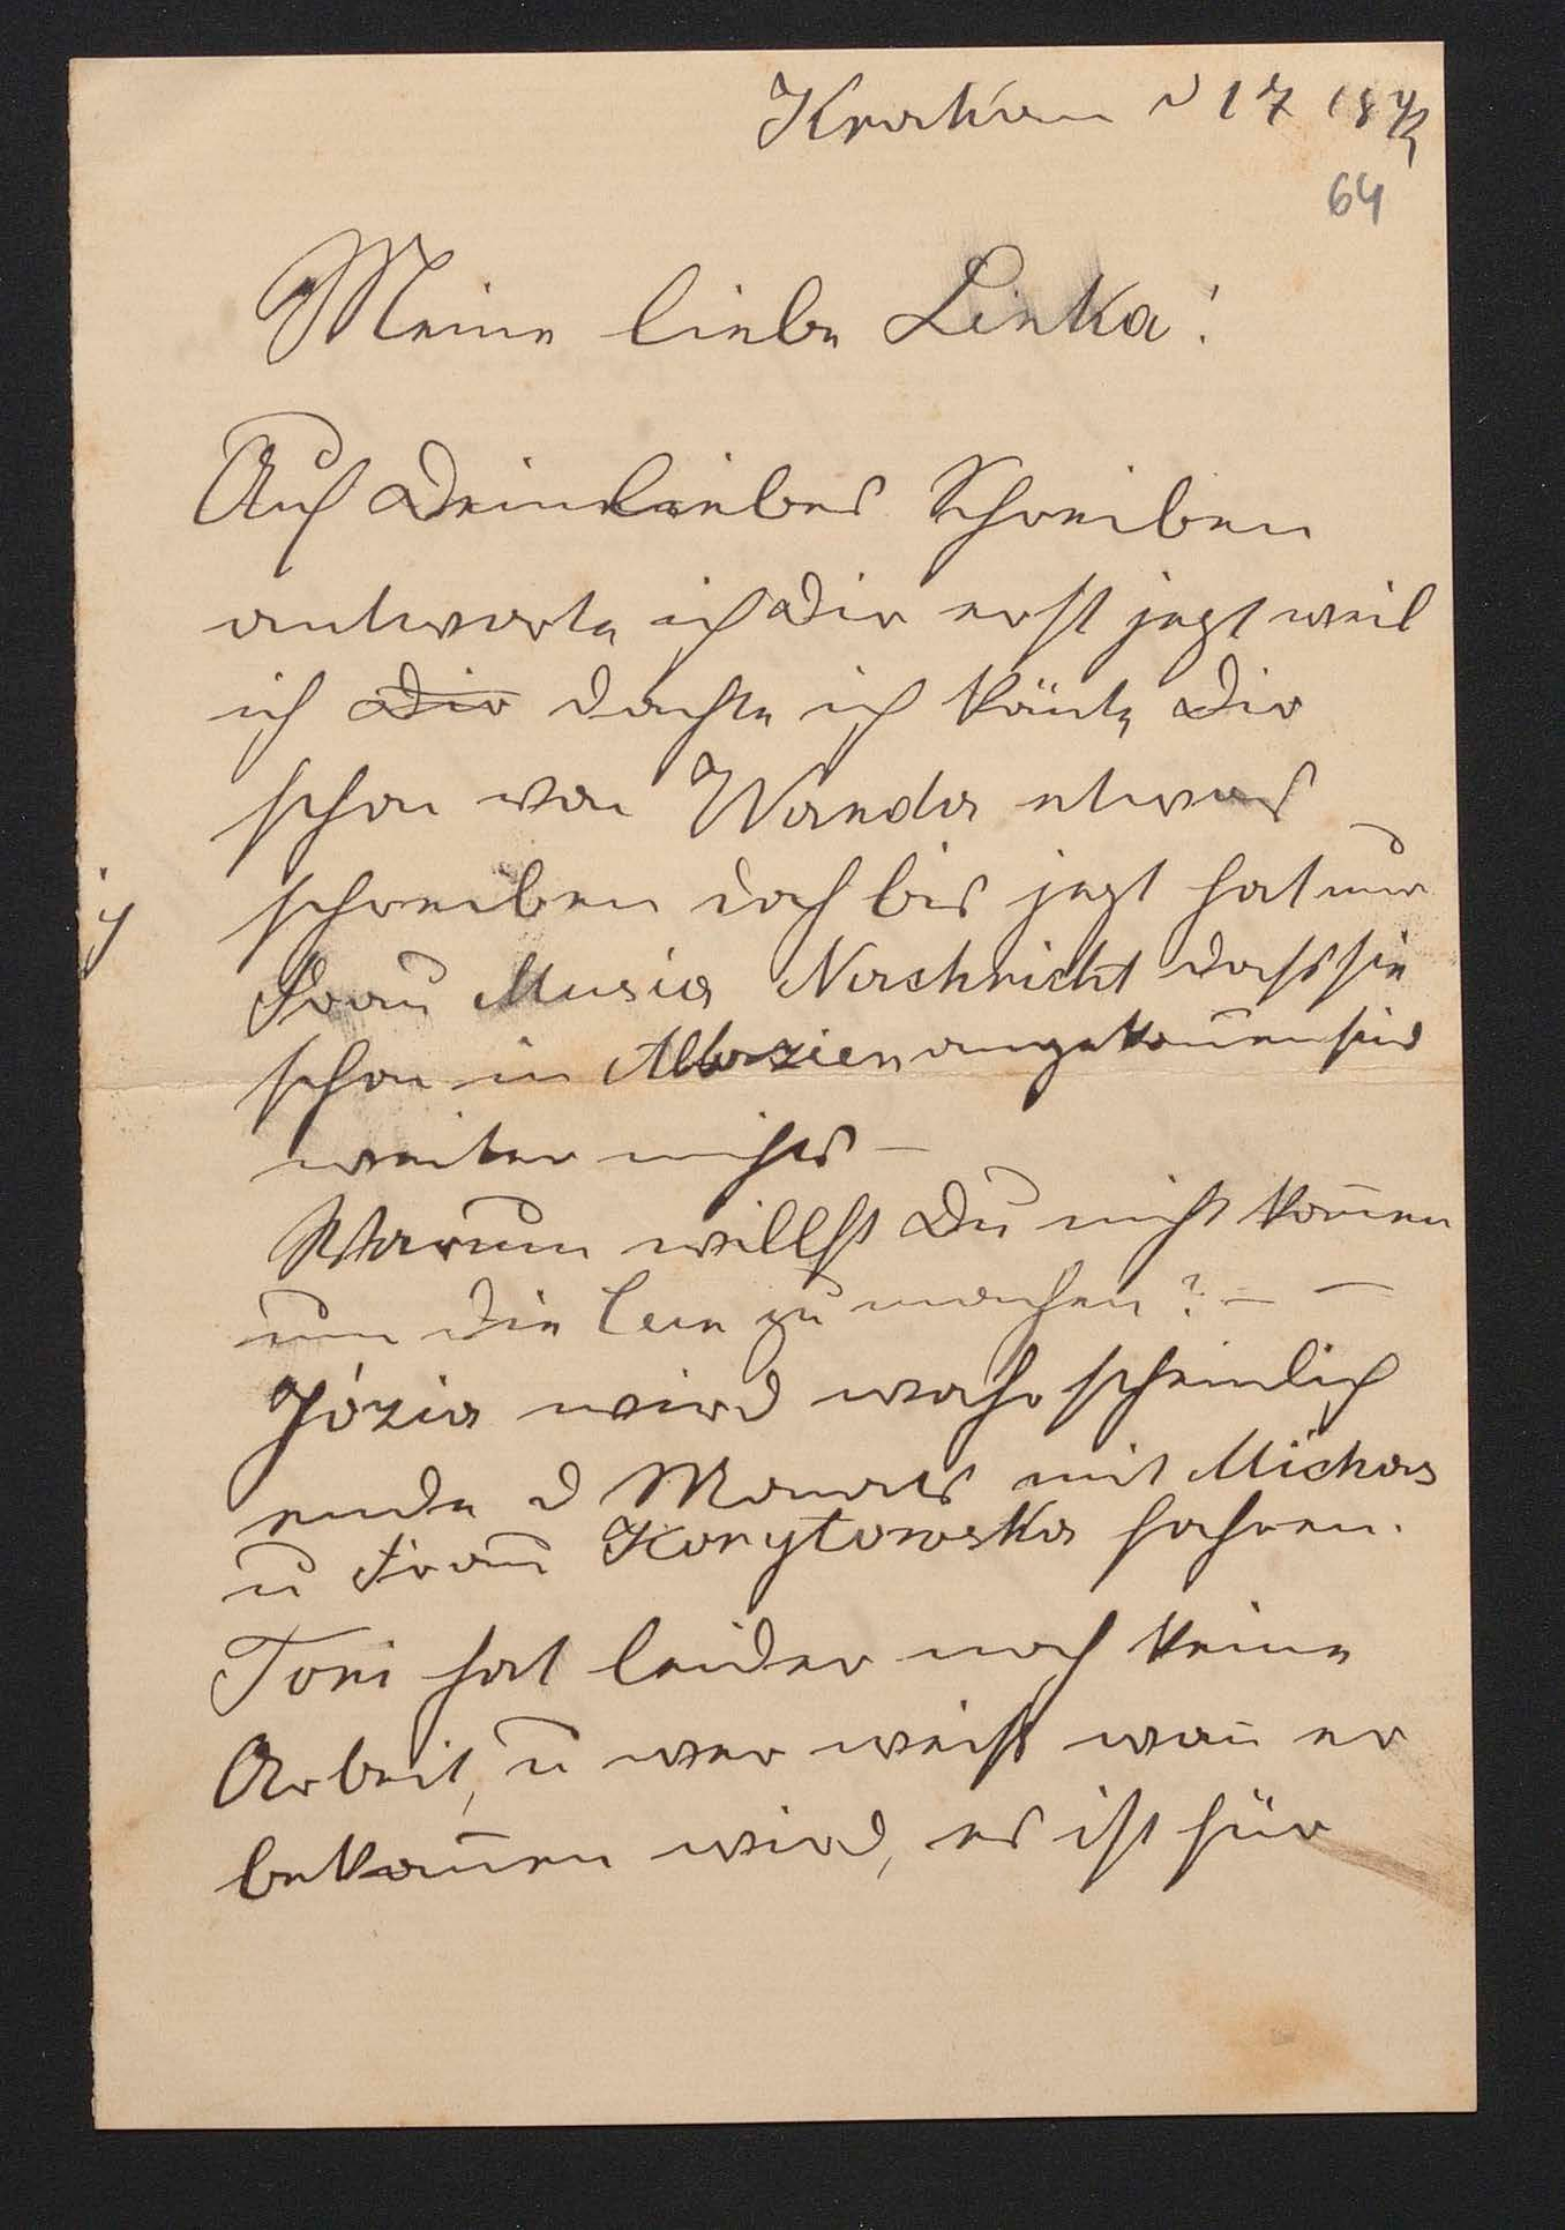 Krakau d 17
64
Meine liebe Linka!
Auf Dein liebes Schreiben
antworte ich Dir erst jezt weil
ich Dir dachte ich könte Dir
schon von Wanda etwas
schreiben doch bis jezt hat nur
Frau Musia Nachricht dass sie
schon in Abbazien angekom̄en sind
weiter nichts –
Warum willst Du nicht kom̄en
um die zu machen? – –
Józia wird wahrscheinlich
ende d Monats mit Michas
u Frau Korytowska fahren.
Toni hat leider noch keine
Arbeit, u wer weiß wan̄ er
bekom̄en wird, es ist für